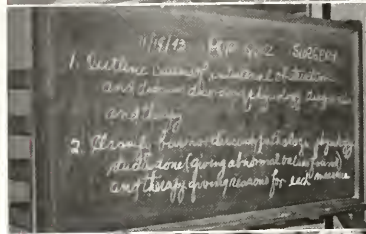 11/19/43 SURGERY
1. Outline causes of intestinal obstruction
and discuss physiology
and therapy
2. Classify burns discuss pathology, physiology
studies done (giving abnormal values found)
and therapy giving reasons for each measure